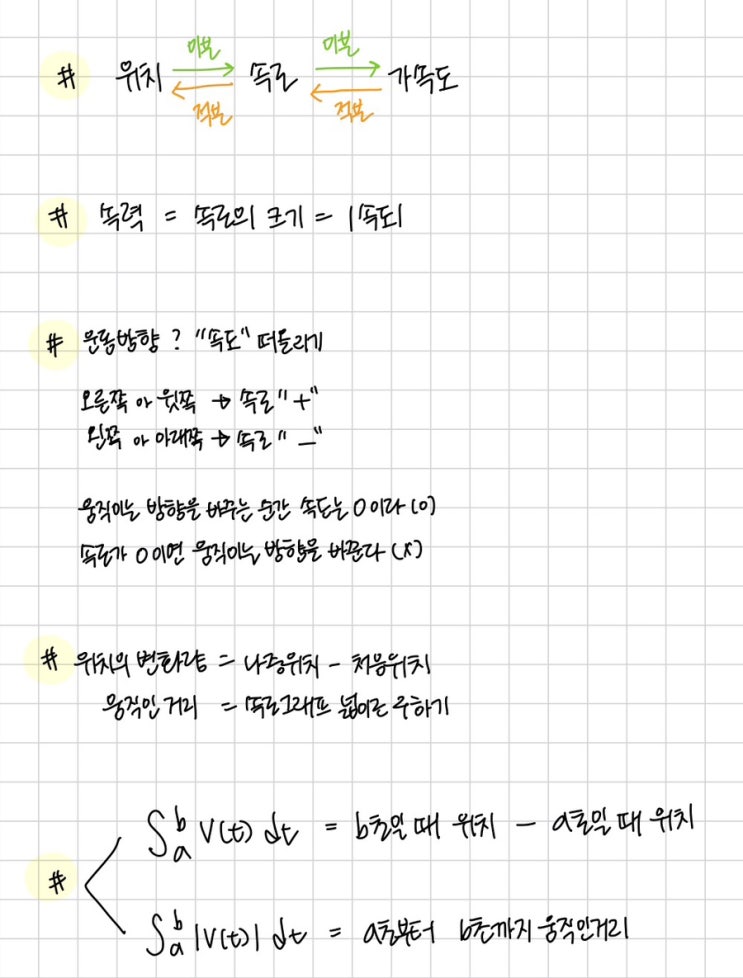 미분 미분
# 위치 속도 가속도
적분 적분
# 속력 = 속도의 크기 = |속도|
# 운동방향 ? "속도" 떠올리기
오른쪽 or 윗쪽 → 속도 "+"
왼쪽 or 아래쪽 → 속도 "−"
움직이는 방향을 바꾸는 순간 속도는 0이다 (o)
속도가 0이면 움직이는 방향을 바꾼다 (x)
# 위치의 변화량 = 나중위치 - 처음위치
움직인 거리 = 속도그래프 넓이로 구하기
∫_a^b V(t) dt = b초일 때 위치 - a초일 때 위치
#
∫_a^b |V(t)| dt = a초부터 b초까지 움직인거리